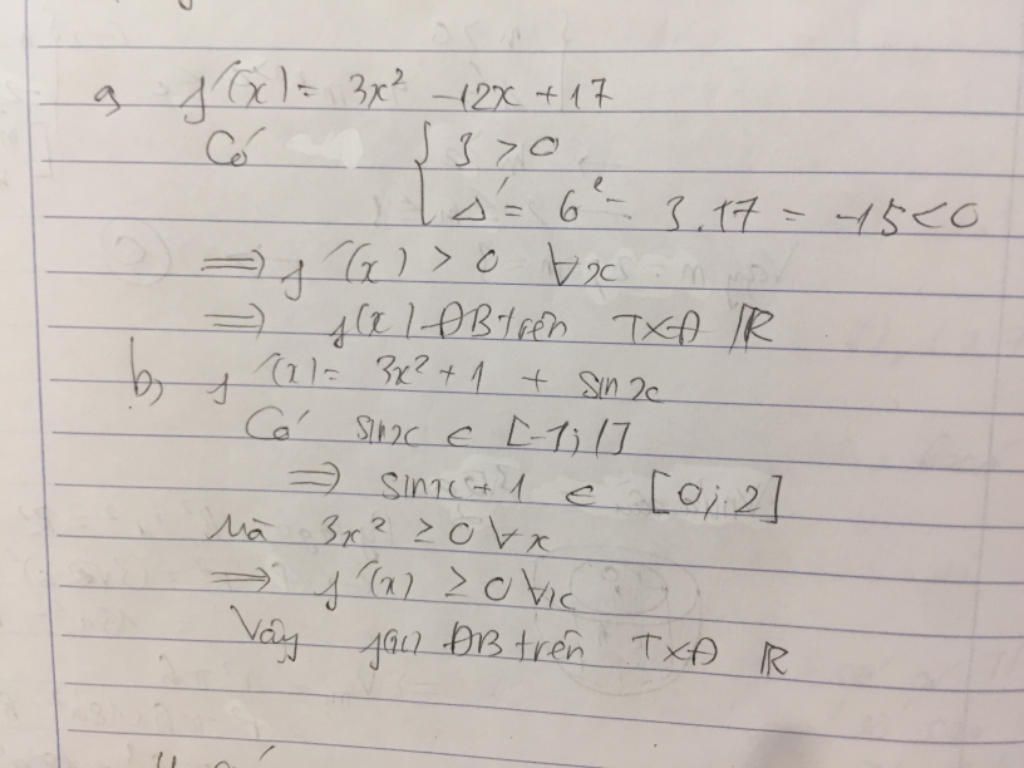 a, f'(x) = 3x² - 12x + 17
Có { 3 > 0
Δ' = 6² - 3.17 = -15 < 0
⟹ f'(x) > 0 ∀x
⟹ f(x) ĐB trên TXĐ ℝ
b, f'(x) = 3x² + 1 + sin x
Có sinx ∈ [-1; 1]
⟹ sinx + 1 ∈ [0; 2]
Mà 3x² ≥ 0 ∀x
⟹ f'(x) ≥ 0 ∀x
Vậy f(x) ĐB trên TXĐ ℝ